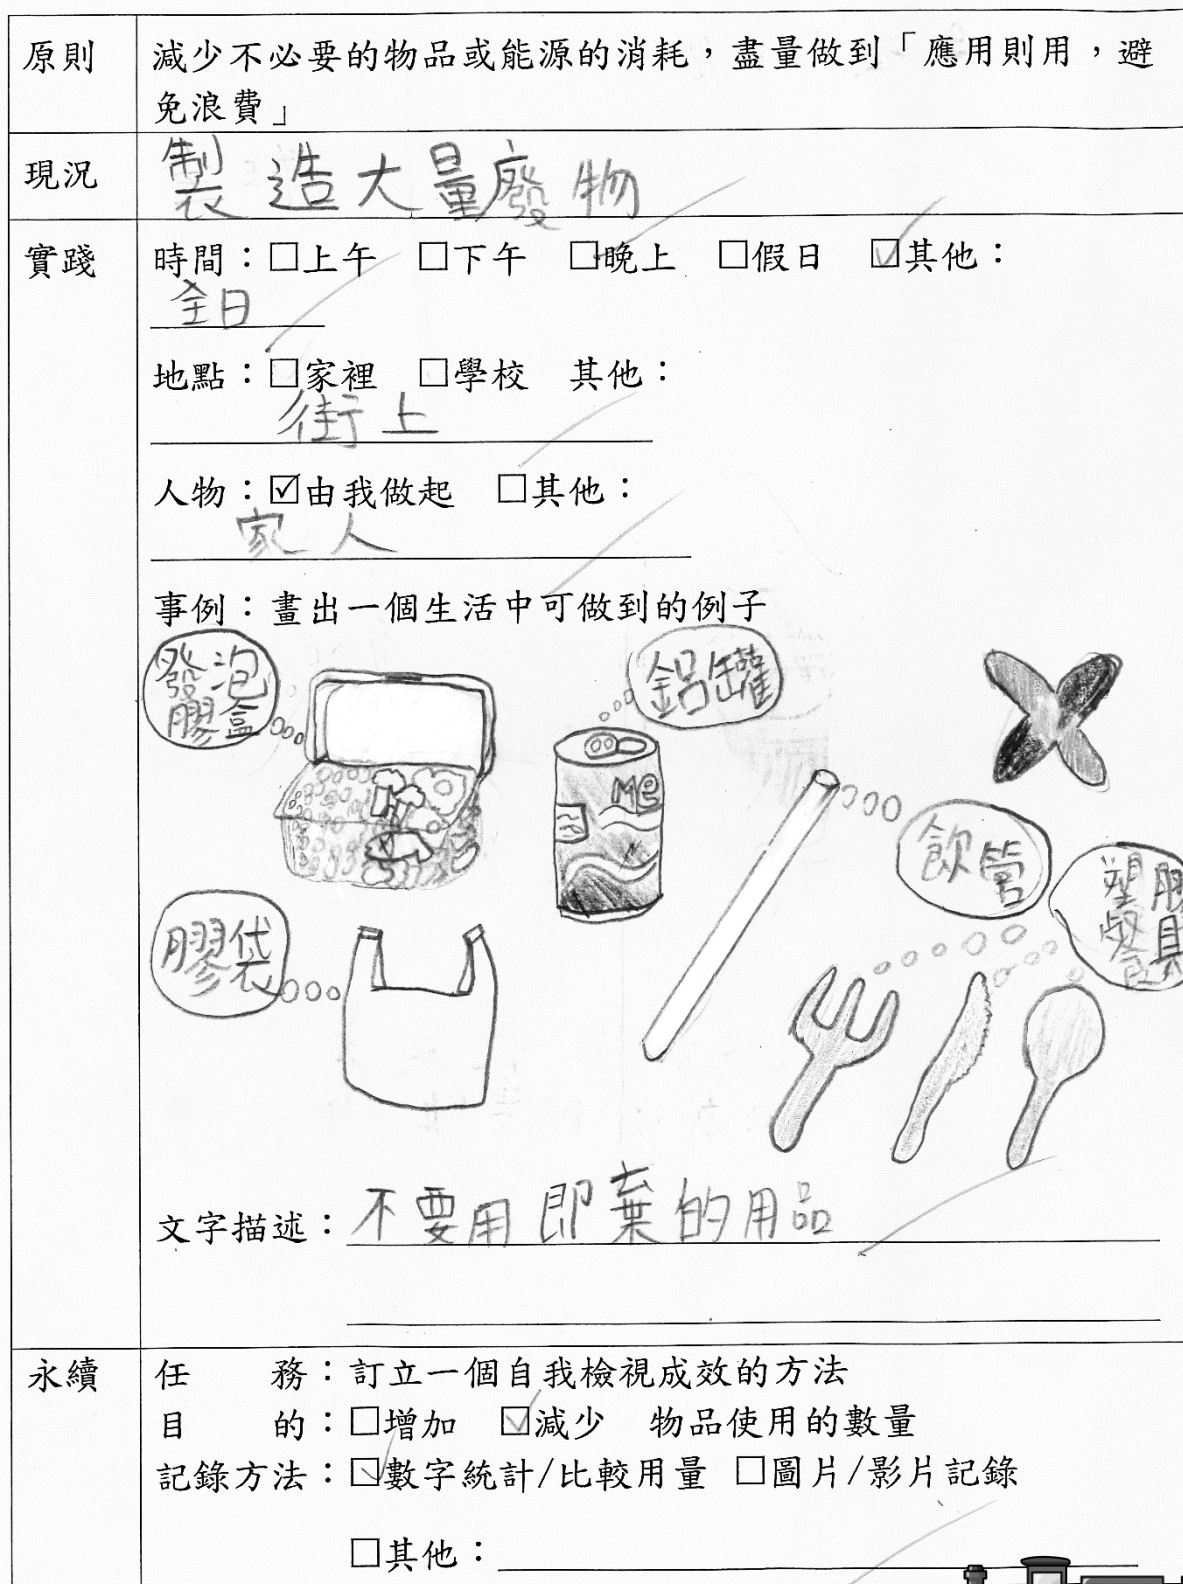 原則 減少不必要的物品或能源的消耗，盡量做到「應用則用，避
免浪費」
現況 製造大量廢物
實踐 時間：□上午 □下午 □晚上 □假日 ☑其他：
全日
地點：□家裡 □學校 其他：
街上
人物：☑由我做起 □其他：
家人
事例：畫出一個生活中可做到的例子
發泡
膠盒
鋁罐
Me
飲管
塑膠
餐具
膠袋
文字描述：不要用即棄的用品
永續 任務：訂立一個自我檢視成效的方法
目的：□增加 ☑減少 物品使用的數量
記錄方法：☑數字統計/比較用量 □圖片/影片記錄
□其他：